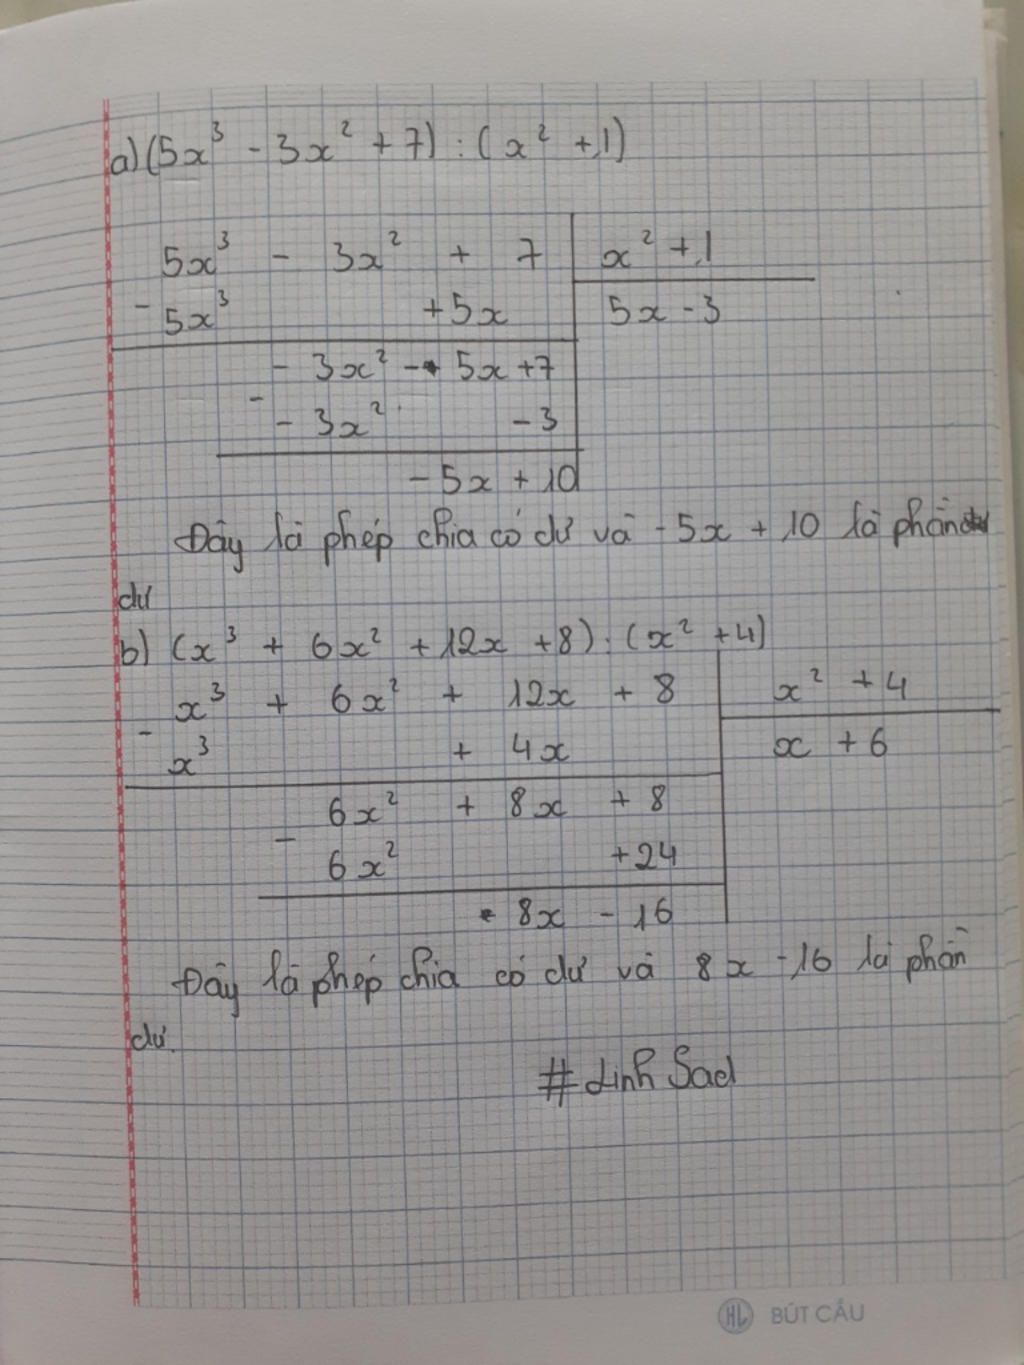 a) (5x³ - 3x² + 7) : (x² + 1)
5x³ - 3x² + 7 | x² + 1
- 5x³ + 5x | 5x - 3
- 3x² - 5x + 7
- - 3x² - 3
- 5x + 10
Đây là phép chia có dư và -5x + 10 là phần
dư
b) (x³ + 6x² + 12x + 8) : (x² + 4)
x³ + 6x² + 12x + 8 | x² + 4
- x³ + 4x | x + 6
6x² + 8x + 8
- 6x² + 24
8x - 16
Đây là phép chia có dư và 8x - 16 là phần
dư.
# Linh Sad
HL BÚT CẦU